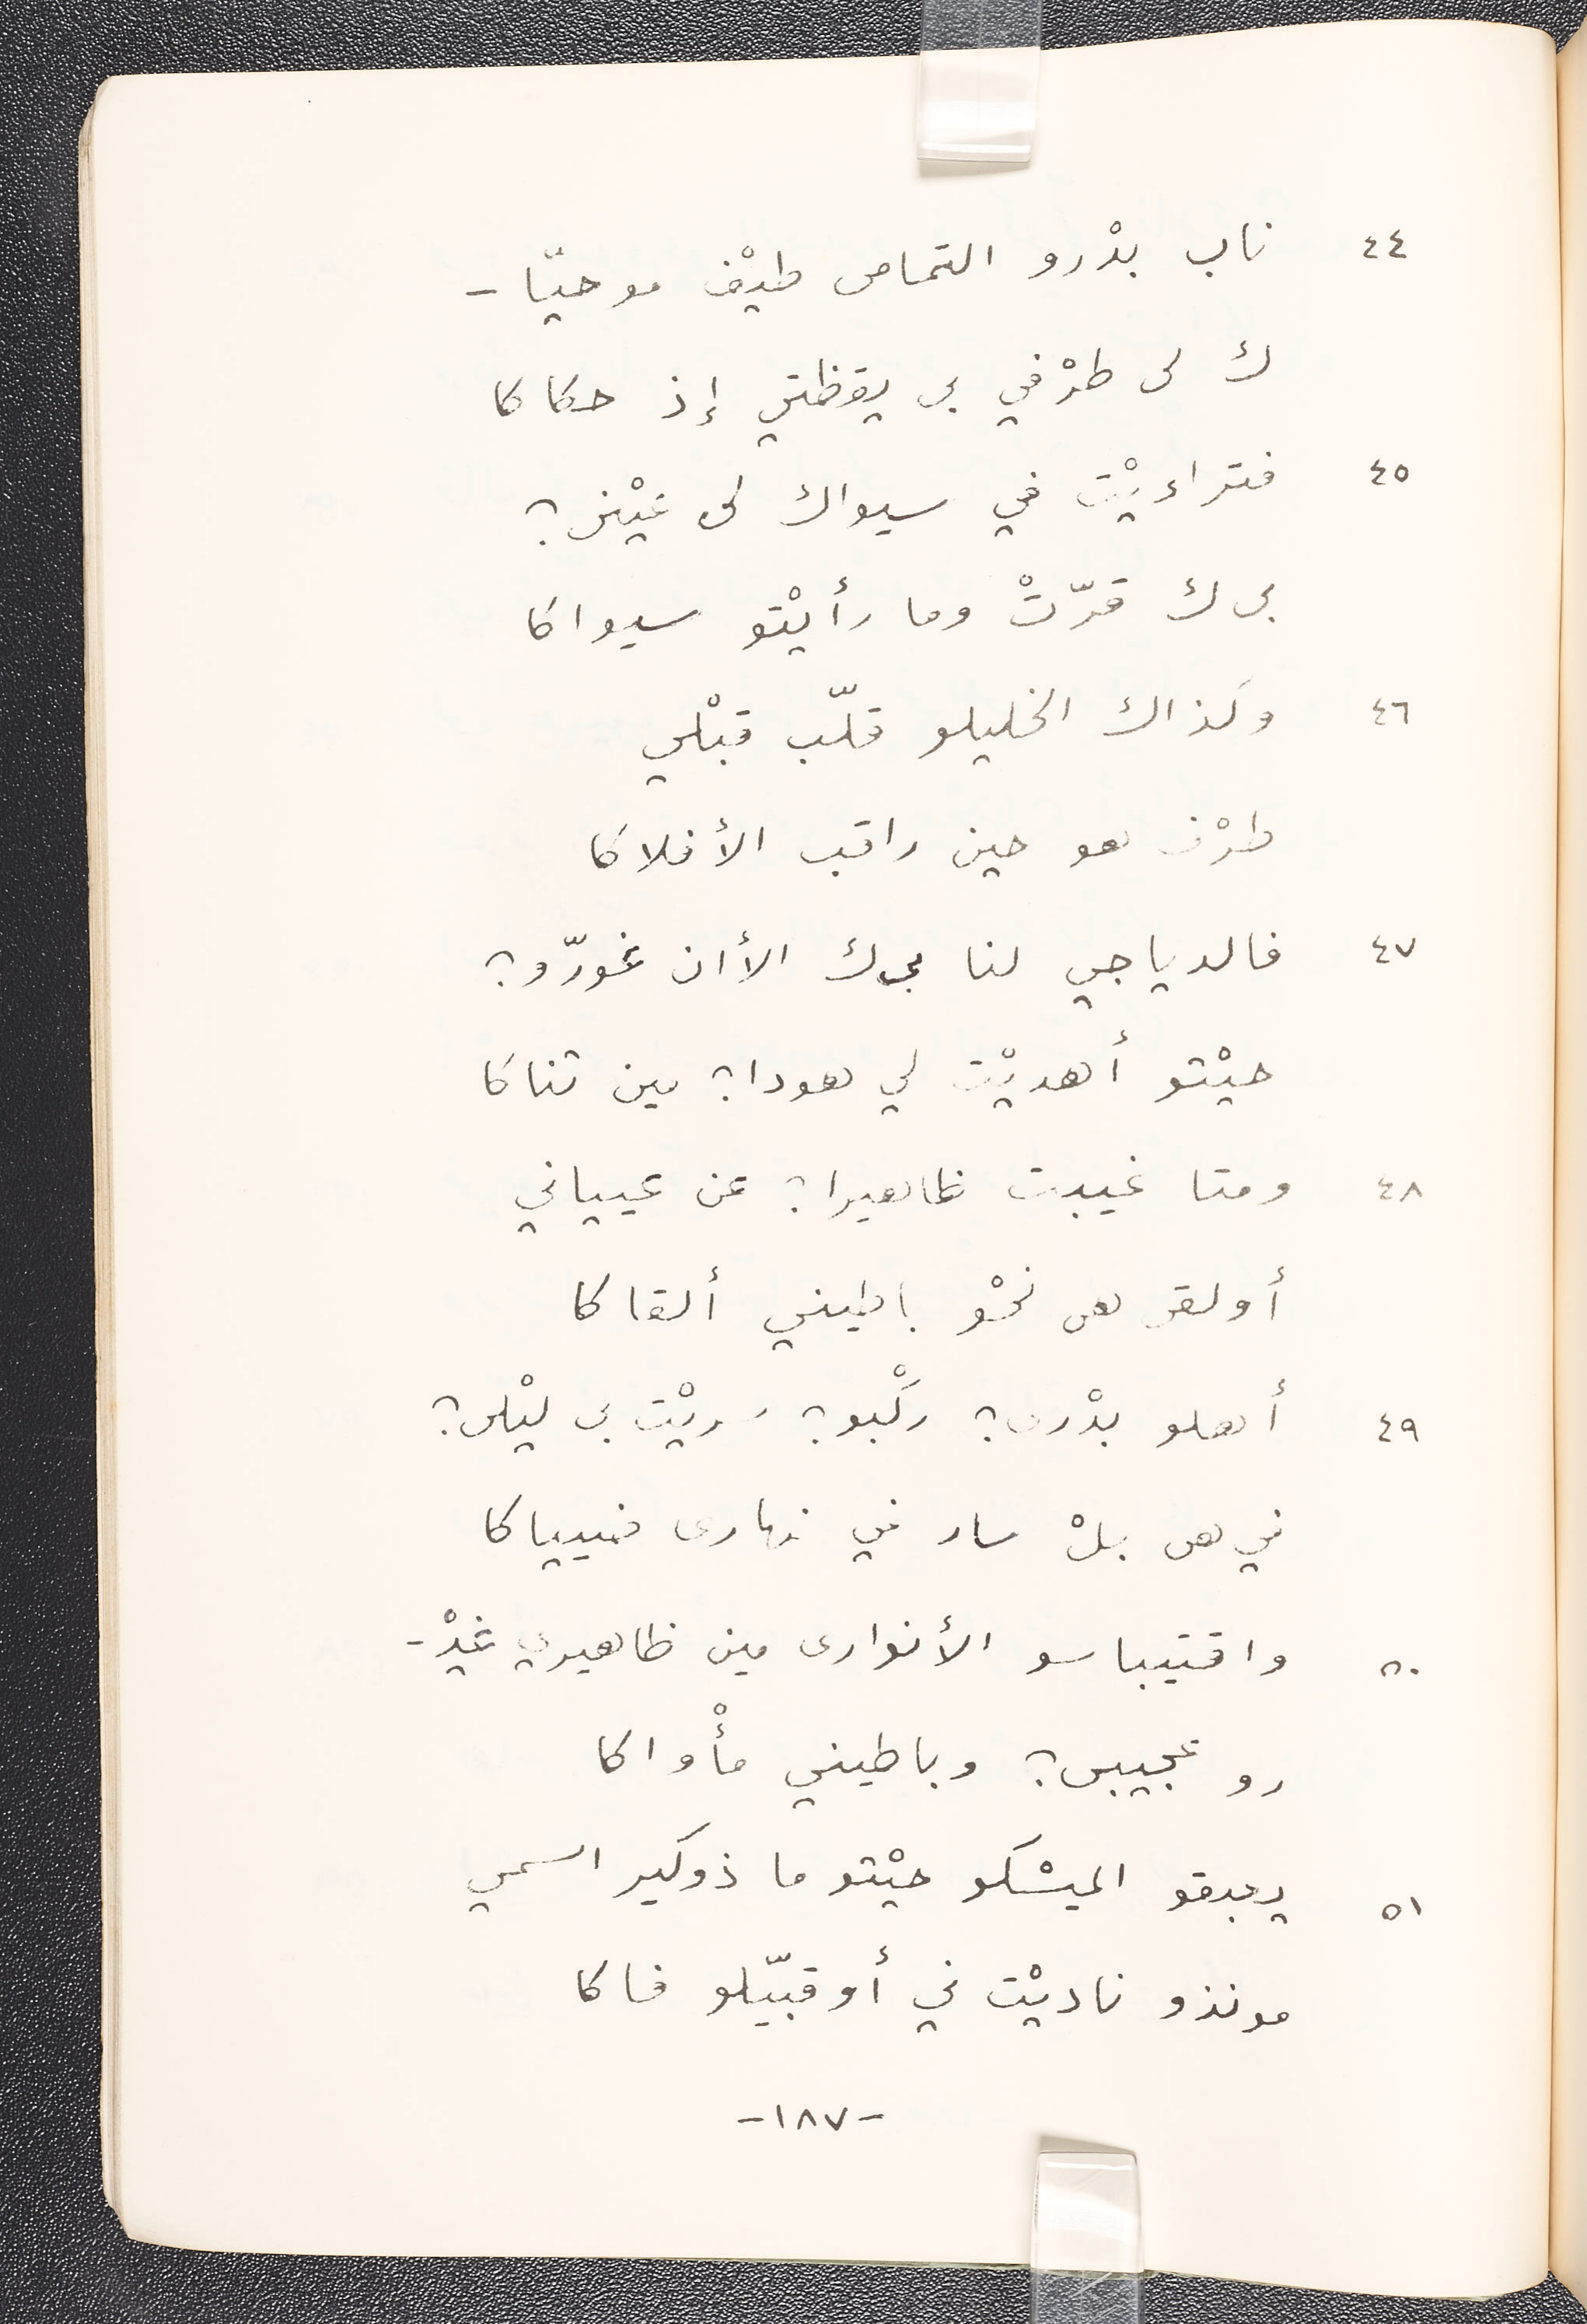 ٤٤ ناب بدْرو التمامى طيْف موحيّا -
ك لى طرْفي بى يقظتي إذ حكاكا
٤٥ فتراءيْت في سيواك لى عيْنى؟
بى ك قرّتْ وما رأيْتو سيواكا
٤٦ وكذاك الخليلو قلّب قبْلي
طرْف هو حين راقب الأفلاكا
٤٧ فالدياجي لنا بى ك الأان غورّو؟
حيْثو أهديْت لي هودا؟ مين ثناكا
٤٨ ومتا غيبت ظاهيرا؟ عن عيياني
أولقى هى نحْو باطيني ألقاكا
٤٩ أهلو بدْرى؟ ركْبو؟ سريْت بى ليْلى؟
في هى بلْ سار في نهارى ضييياكا
٥٠ واقتيباسو الأنوارى مين ظاهيري غيْ -
رو عجيبى؟ وباطيني مأْواكا
٥١ يعبقو الميسْكو حيْثو ما ذوكير اسمي
مونذو ناديْت ني أوقبّيلو فاكا
-١٨٧-